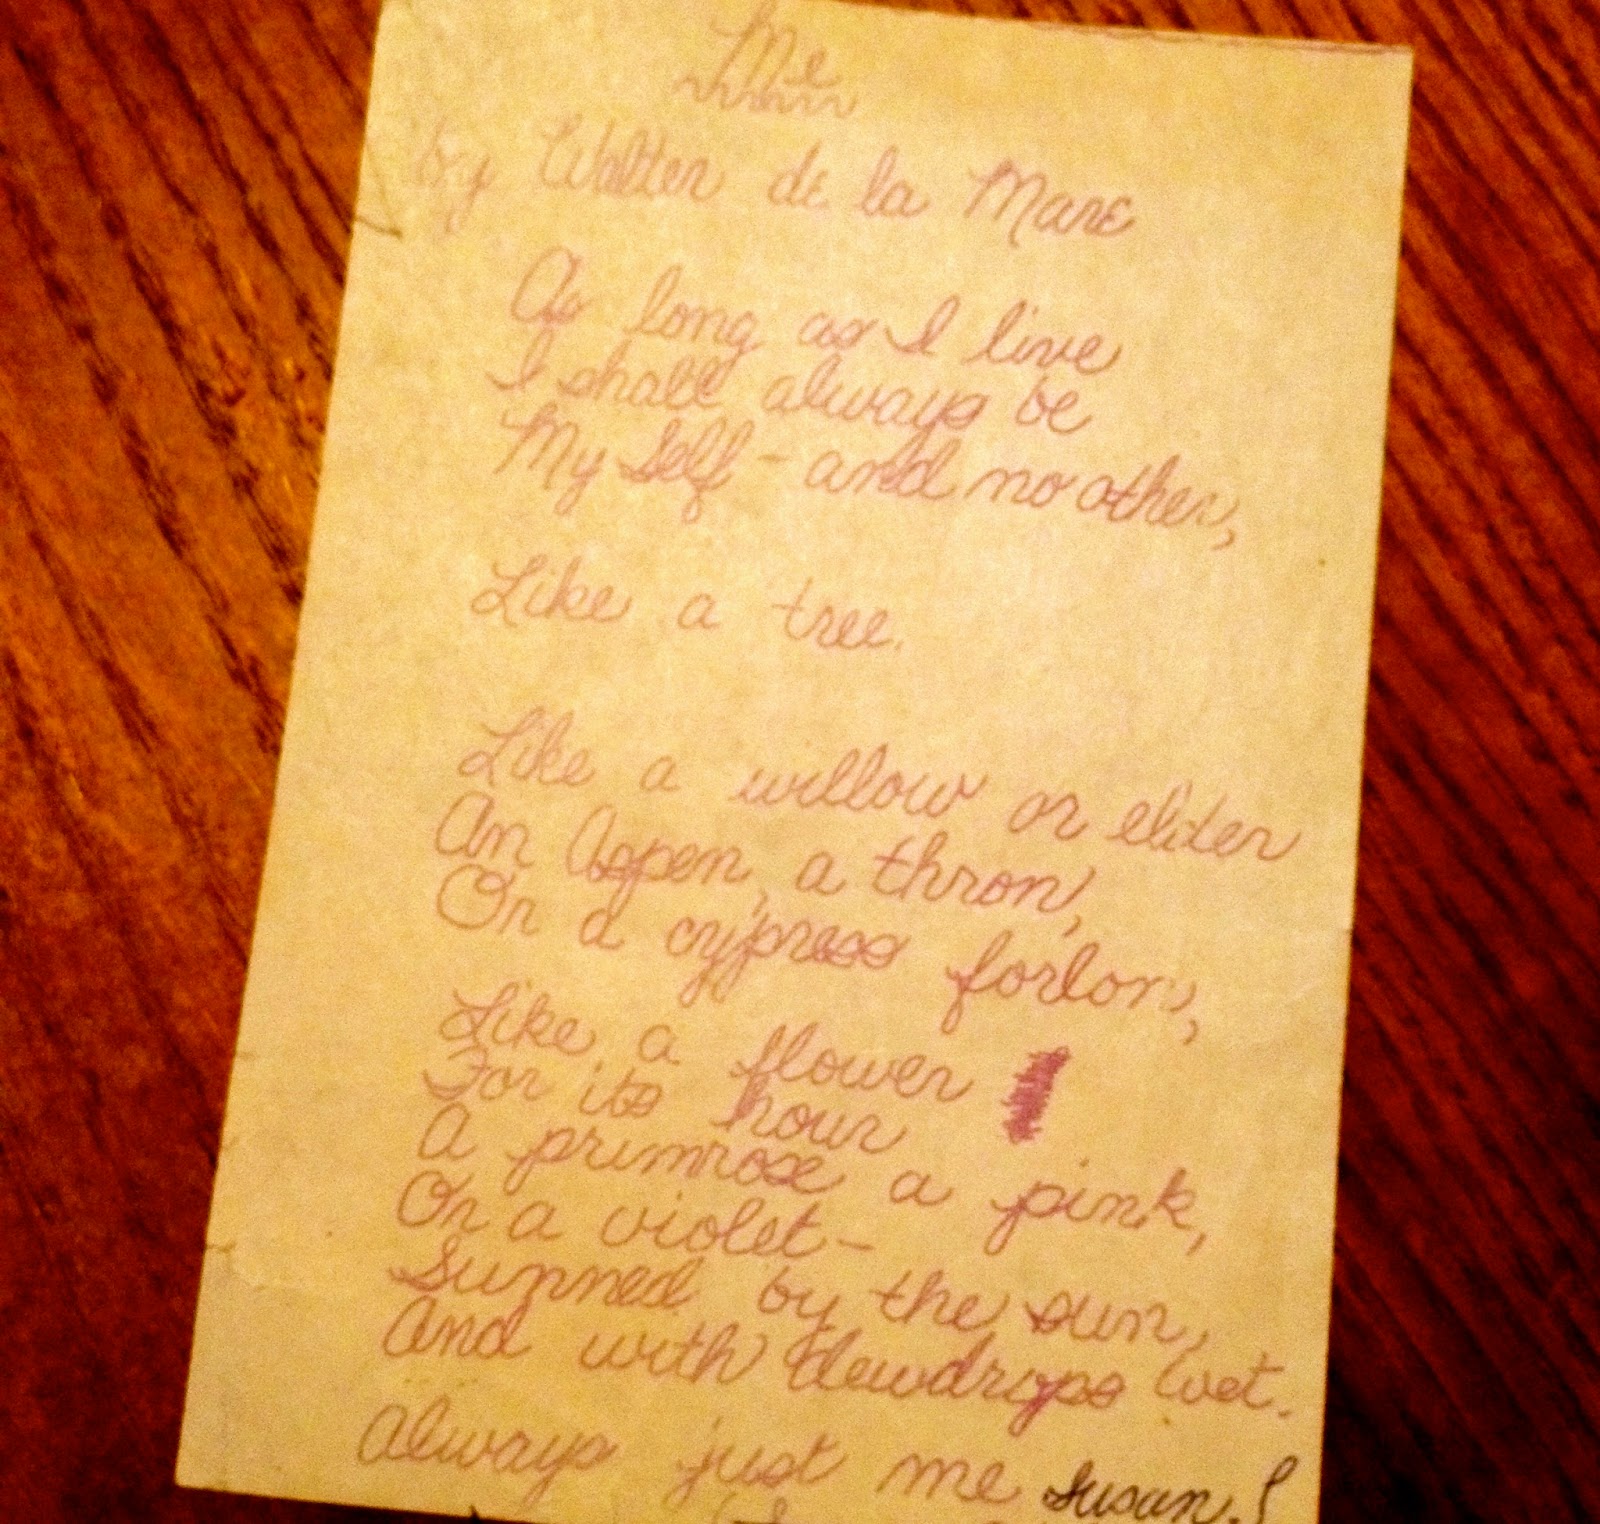 Me
by Walter de la Mare
As long as I live
I shall always be
My Self - and no other,
Like a tree.
Like a willow or elder
An Aspen, a thron,
Or a cypress forlorn,
Like a flower
For its hour
A primrose a pink,
Or a violet -
Sunned by the sun,
And with dewdrops wet.
Always just me Susan.